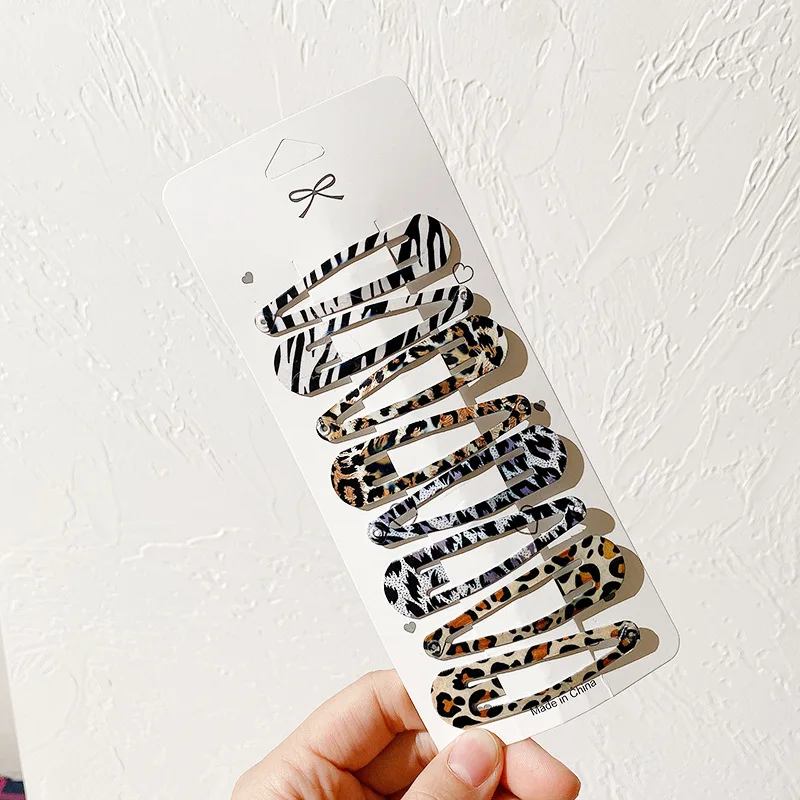 Made in China